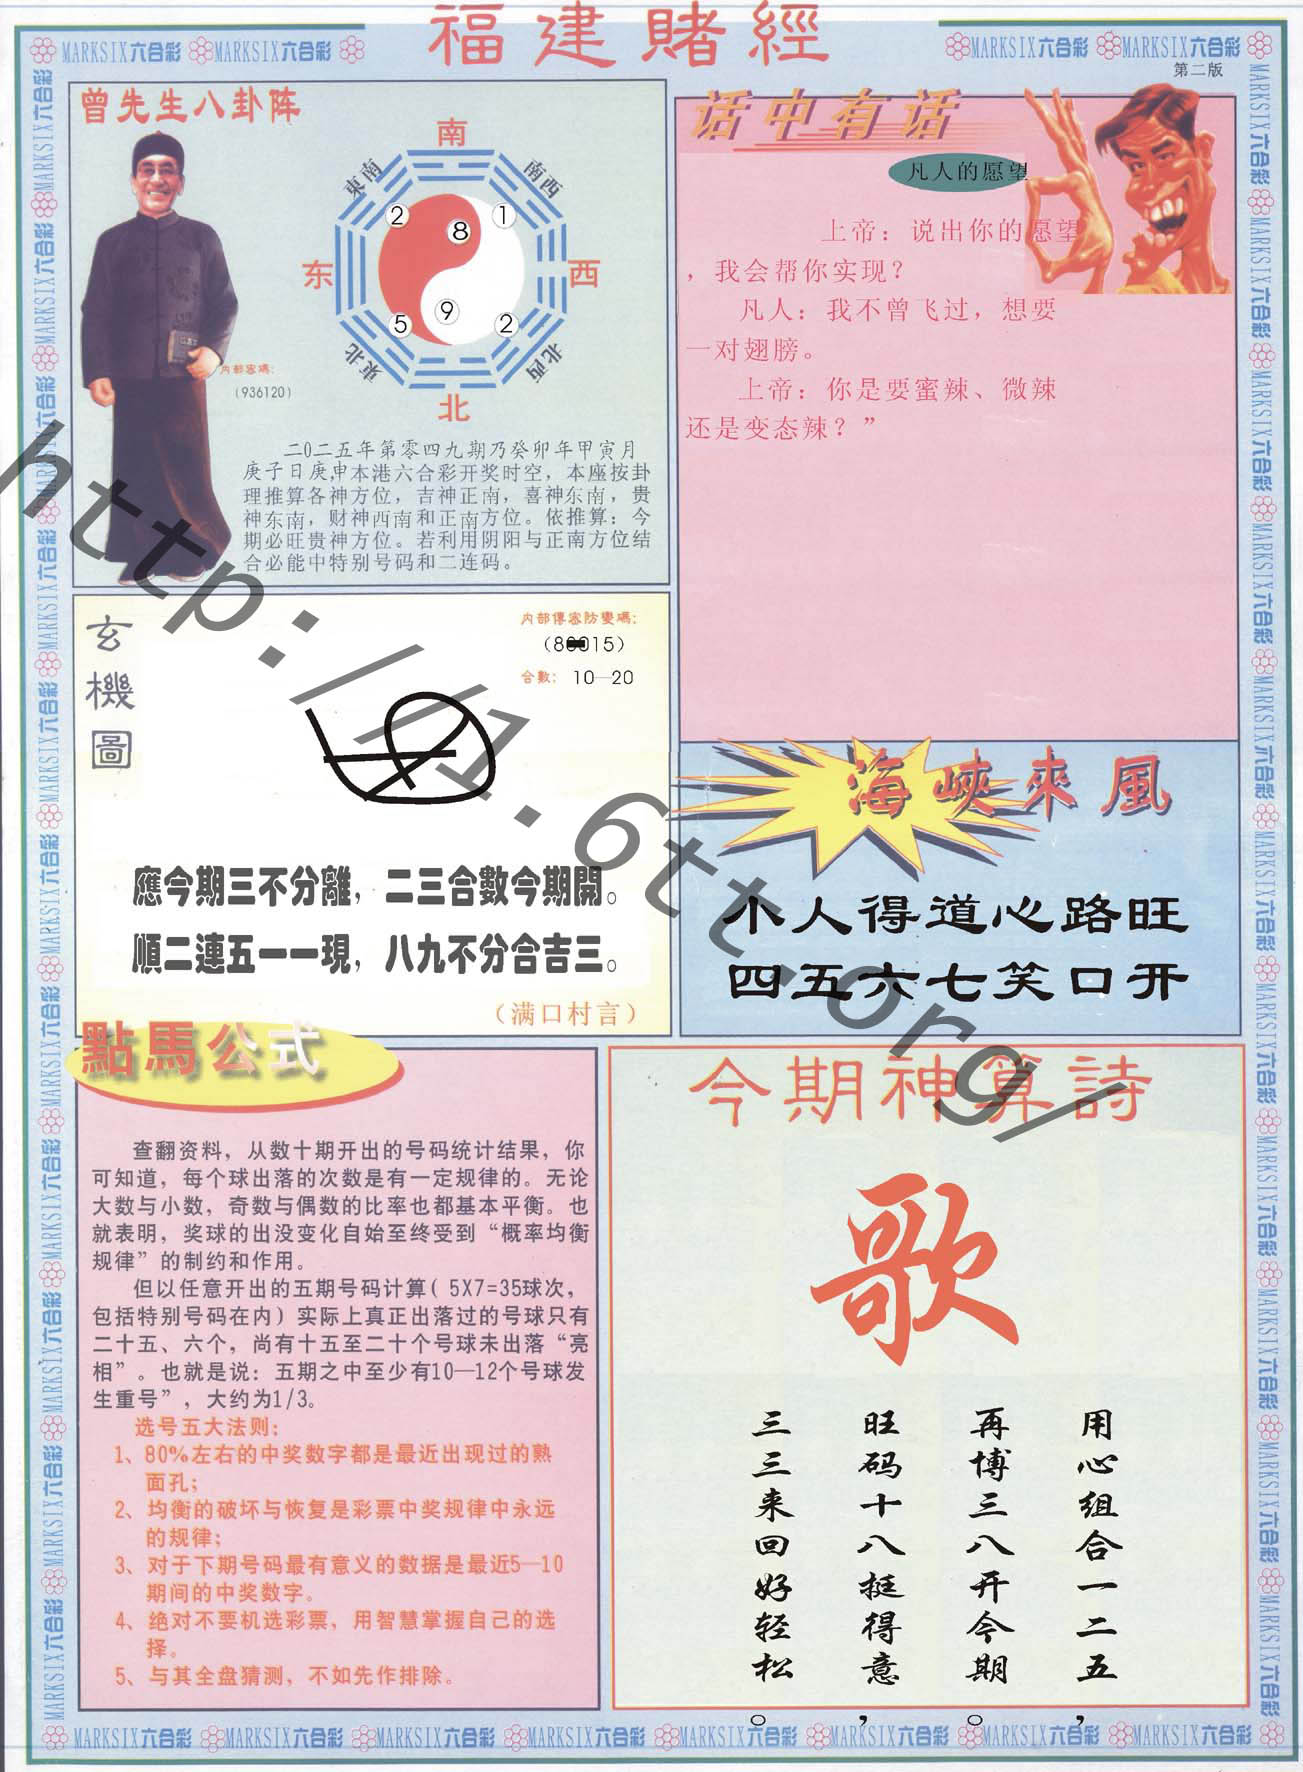 福建賭經
MARKSIX六合彩 MARKSIX六合彩
MARKSIX六合彩 MARKSIX六合彩
第二版
曾先生八卦阵
南
東南
南西
2
8
1
东
西
5
9
2
東北
北西
北
内部密碼:
(936120)
二0二五年第零四九期乃癸卯年甲寅月
庚子日庚申本港六合彩开奖时空，本座按卦
理推算各神方位，吉神正南，喜神东南，贵
神东南，财神西南和正南方位。依推算：今
期必旺贵神方位。若利用阴阳与正南方位结
合必能中特别号码和二连码。
话中有话
凡人的愿望
上帝：说出你的愿望
，我会帮你实现？
凡人：我不曾飞过，想要
一对翅膀。
上帝：你是要蜜辣、微辣
还是变态辣？”
玄機圖
内部傳密防變碼:
合數: 10—20
應今期三不分離，二三合數今期開。
順二連五一一現，八九不分合吉三。
（满口村言）
海峽來風
小人得道心路旺
四五六七笑口开
點馬公式
查翻资料，从数十期开出的号码统计结果，你
可知道，每个球出落的次数是有一定规律的。无论
大数与小数，奇数与偶数的比率也都基本平衡。也
就表明，奖球的出没变化自始至终受到“概率均衡
规律”的制约和作用。
但以任意开出的五期号码计算( 5X7=35球次，
包括特别号码在内）实际上真正出落过的号球只有
二十五、六个，尚有十五至二十个号球未出落“亮
相”。也就是说：五期之中至少有10—12个号球发
生重号”，大约为1/3。
选号五大法则：
1、80%左右的中奖数字都是最近出现过的熟
面孔；
2、均衡的破坏与恢复是彩票中奖规律中永远
的规律；
3、对于下期号码最有意义的数据是最近5—10
期间的中奖数字。
4、绝对不要机选彩票，用智慧掌握自己的选
择。
5、与其全盘猜测，不如先作排除。
今期神算詩
歌
用心组合一二五，
再博三八开今期。
旺码十八挺得意，
三三来回好轻松。
MARKSIX六合彩 MARKSIX六合彩 MARKSIX六合彩 MARKSIX六合彩 MARKSIX六合彩 MARKSIX六合彩 MARKSIX六合彩 MARKSIX六合彩
http://1.6tt.org/